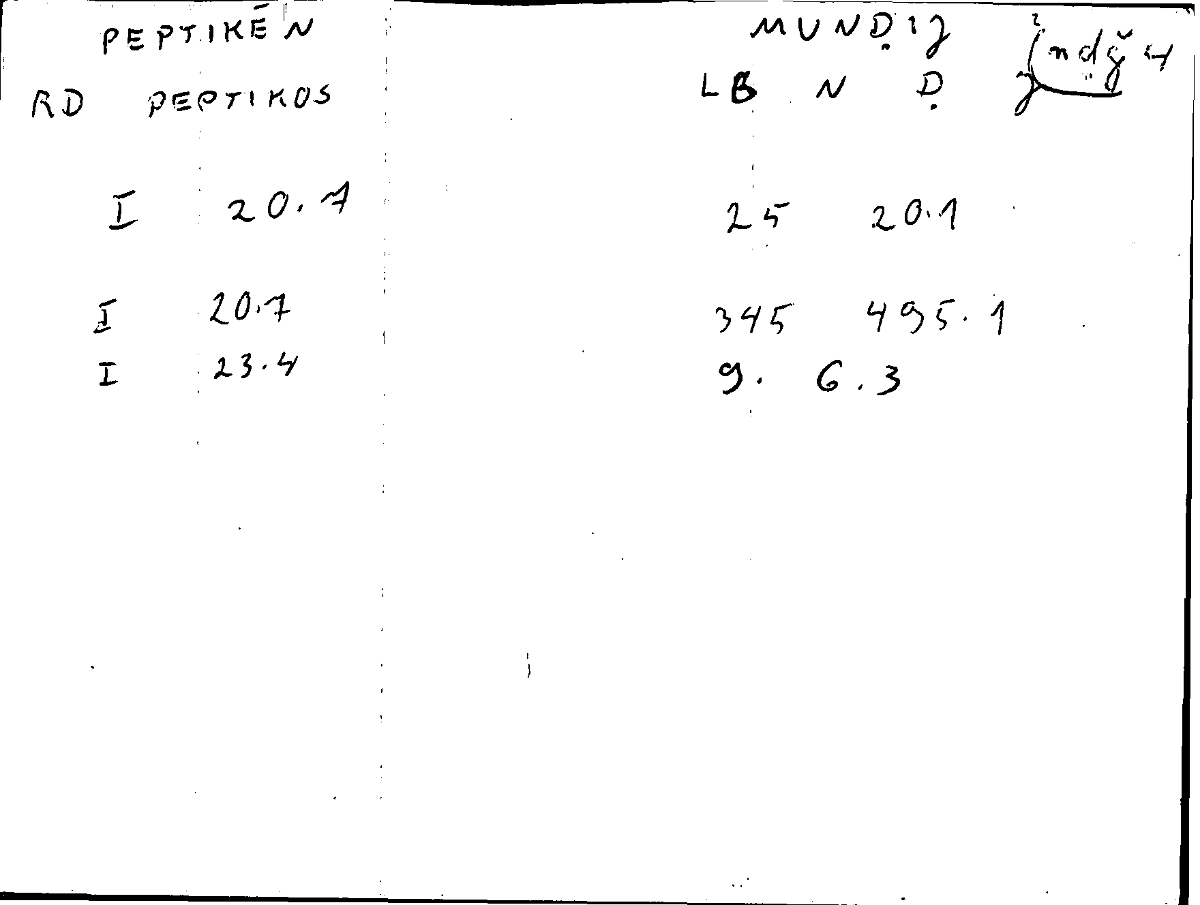 PEPTIKĒN MUNḌIJ
RD PEPTIKOS LB N Ḍ
I 20.7 25 20.1
I 20.7 345 495.1
I 23.4 9. 6.3